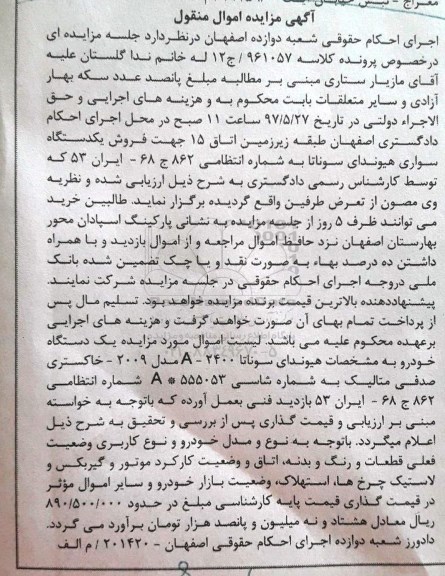 آگهی مزایده اموال منقول
اجرای احکام حقوقی شعبه دوازده اصفهان درنظردارد جلسه مزایده ای
درخصوص پرونده کلاسه ۹۶۱۰۵۷ / ج۱۲ له خانم ندا گلستان علیه
آقای مازیار ستاری مبنی بر مطالبه مبلغ پانصد عدد سکه بهار
آزادی و سایر متعلقات بابت محکوم به و هزینه های اجرایی و حق
الاجراء دولتی در تاریخ ۹۷/۵/۲۷ ساعت ۱۱ صبح در محل اجرای احکام
دادگستری اصفهان طبقه زیرزمین اتاق ۱۵ جهت فروش یکدستگاه
سواری هیوندای سوناتا به شماره انتظامی ۸۶۲ ج ۶۸ - ایران ۵۳ که
توسط کارشناس رسمی دادگستری به شرح ذیل ارزیابی شده و نظریه
وی مصون از تعرض طرفین واقع گردیده برگزار نماید. طالبین خرید
می توانند ظرف ۵ روز از جلسه مزایده به نشانی پارکینگ اسپادان محور
بهارستان اصفهان نزد حافظ اموال مراجعه و از اموال بازدید و با همراه
داشتن ده درصد بهاء به صورت نقد و یا چک تضمین شده بانک
ملی دروجه اجرای احکام حقوقی در جلسه مزایده شرکت نمایند.
پیشنهاددهنده بالاترین قیمت برنده مزایده خواهد بود. تسلیم مال پس
از پرداخت تمام بهای آن صورت خواهد گرفت و هزینه های اجرایی
برعهده محکوم علیه می باشد. لیست اموال مورد مزایده یک دستگاه
خودرو به مشخصات هیوندای سوناتا ۲۴۰۰ - A مدل ۲۰۰۹ - خاکستری
صدفی متالیک به شماره شاسی ۵۵۵۰۵۳ * A شماره انتظامی
۸۶۲ ج ۶۸ - ایران ۵۳ بازدید فنی بعمل آورده که باتوجه به خواسته
مبنی بر ارزیابی و قیمت گذاری پس از بررسی و تحقیق به شرح ذیل
اعلام میگردد. باتوجه به نوع و مدل خودرو و نوع کاربری وضعیت
فعلی قطعات و رنگ و بدنه، اتاق و وضعیت کارکرد موتور و گیربکس و
لاستیک چرخ ها، استهلاک، وضعیت بازار خودرو و سایر اموال مؤثر
در قیمت گذاری قیمت پایه کارشناسی مبلغ در حدود ۸۹۰/۵۰۰/۰۰۰
ریال معادل هشتاد و نه میلیون و پانصد هزار تومان برآورد می گردد.
دادورز شعبه دوازده اجرای احکام حقوقی اصفهان - ۲۰۱۴۲۰ / م الف